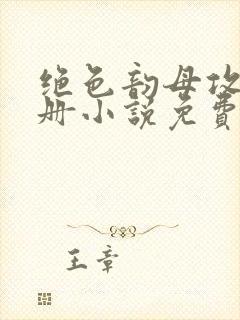 绝色韵母攻
册小说免费
王章